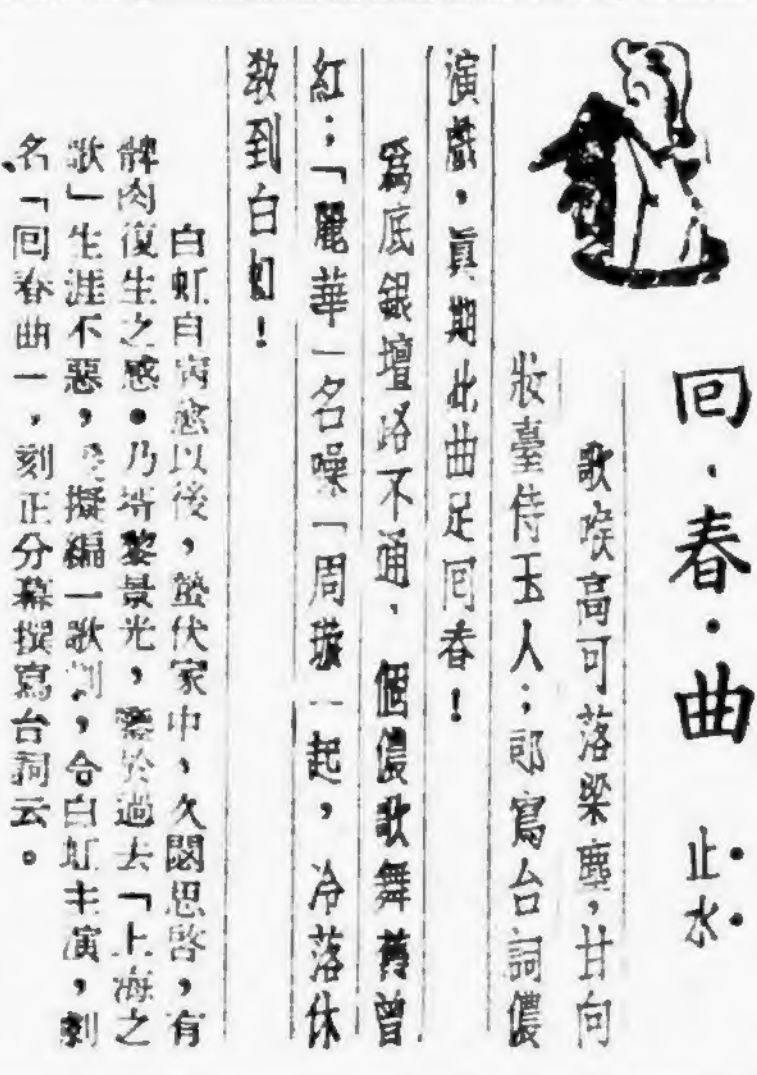 回·春·曲
止水
歌喉高可落梁塵,甘向
妝臺侍玉人;郎寫台詞儂
演戲,眞期此曲足回春!
爲底銀壇路不通,個儂歌舞舊曾
紅;「麗華一名噪「周璇一起,冷落休
敎到白虹!
白虹自病愈以後,蟄伏家中,久悶思啓,有
髀肉復生之感。乃壻黎景光,鑒於過去「上海之
歌」生涯不惡,擬編一歌劇,令白虹主演,劇
名「回春曲一,刻正分幕撰寫台詞云。